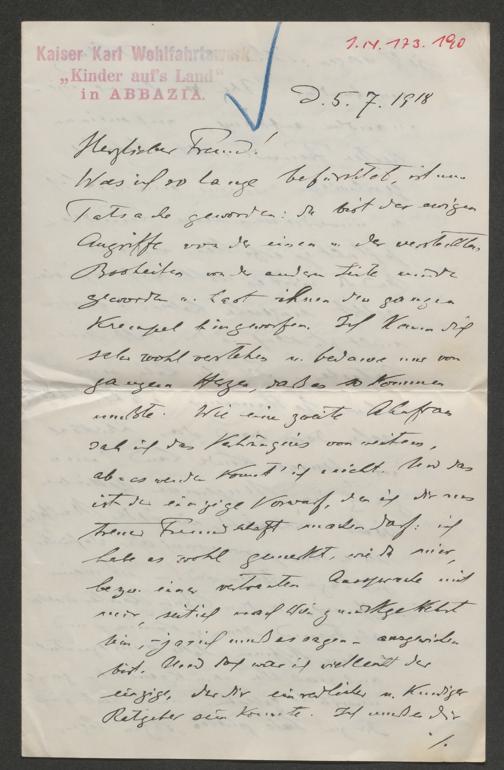 1.IV.173.190
Kaiser Karl Wohlfahrtswerk
„Kinder auf's Land“
in ABBAZIA.
D. 5. 7. 1918
Herzlicher Freund!
Was ich so lange befürchtet, ist nun
Tatsache geworden: du bist der ewigen
Angriffe von der einen u. der versteckten
Bosheiten von der andern Seite müde
geworden u. hast ihnen den ganzen
Krempel hingeworfen. Ich kann dich
sehr wohl verstehen u. bedaure nur von
ganzem Herzen, daß es so kommen
mußte. Wie eine zweite Ahnfrau
sah ich das Verhängnis von weitem,
abwenden konnt' ich nicht. Und das
ist der einzige Vorwurf, den ich dir aus
treuer Freundschaft machen darf: ich
habe es wohl gemerkt, wie du mir,
bezw. einer vertrauten Aussprache mit
mir, seit ich nach Wien zurückgekehrt
bin, – ja ich muß es sagen – ausgewichen
bist. Und doch war ich vielleicht der
einzige, der dir ein redlicher u. kundiger
Ratgeber sein konnte. Ich mußte dir
./.